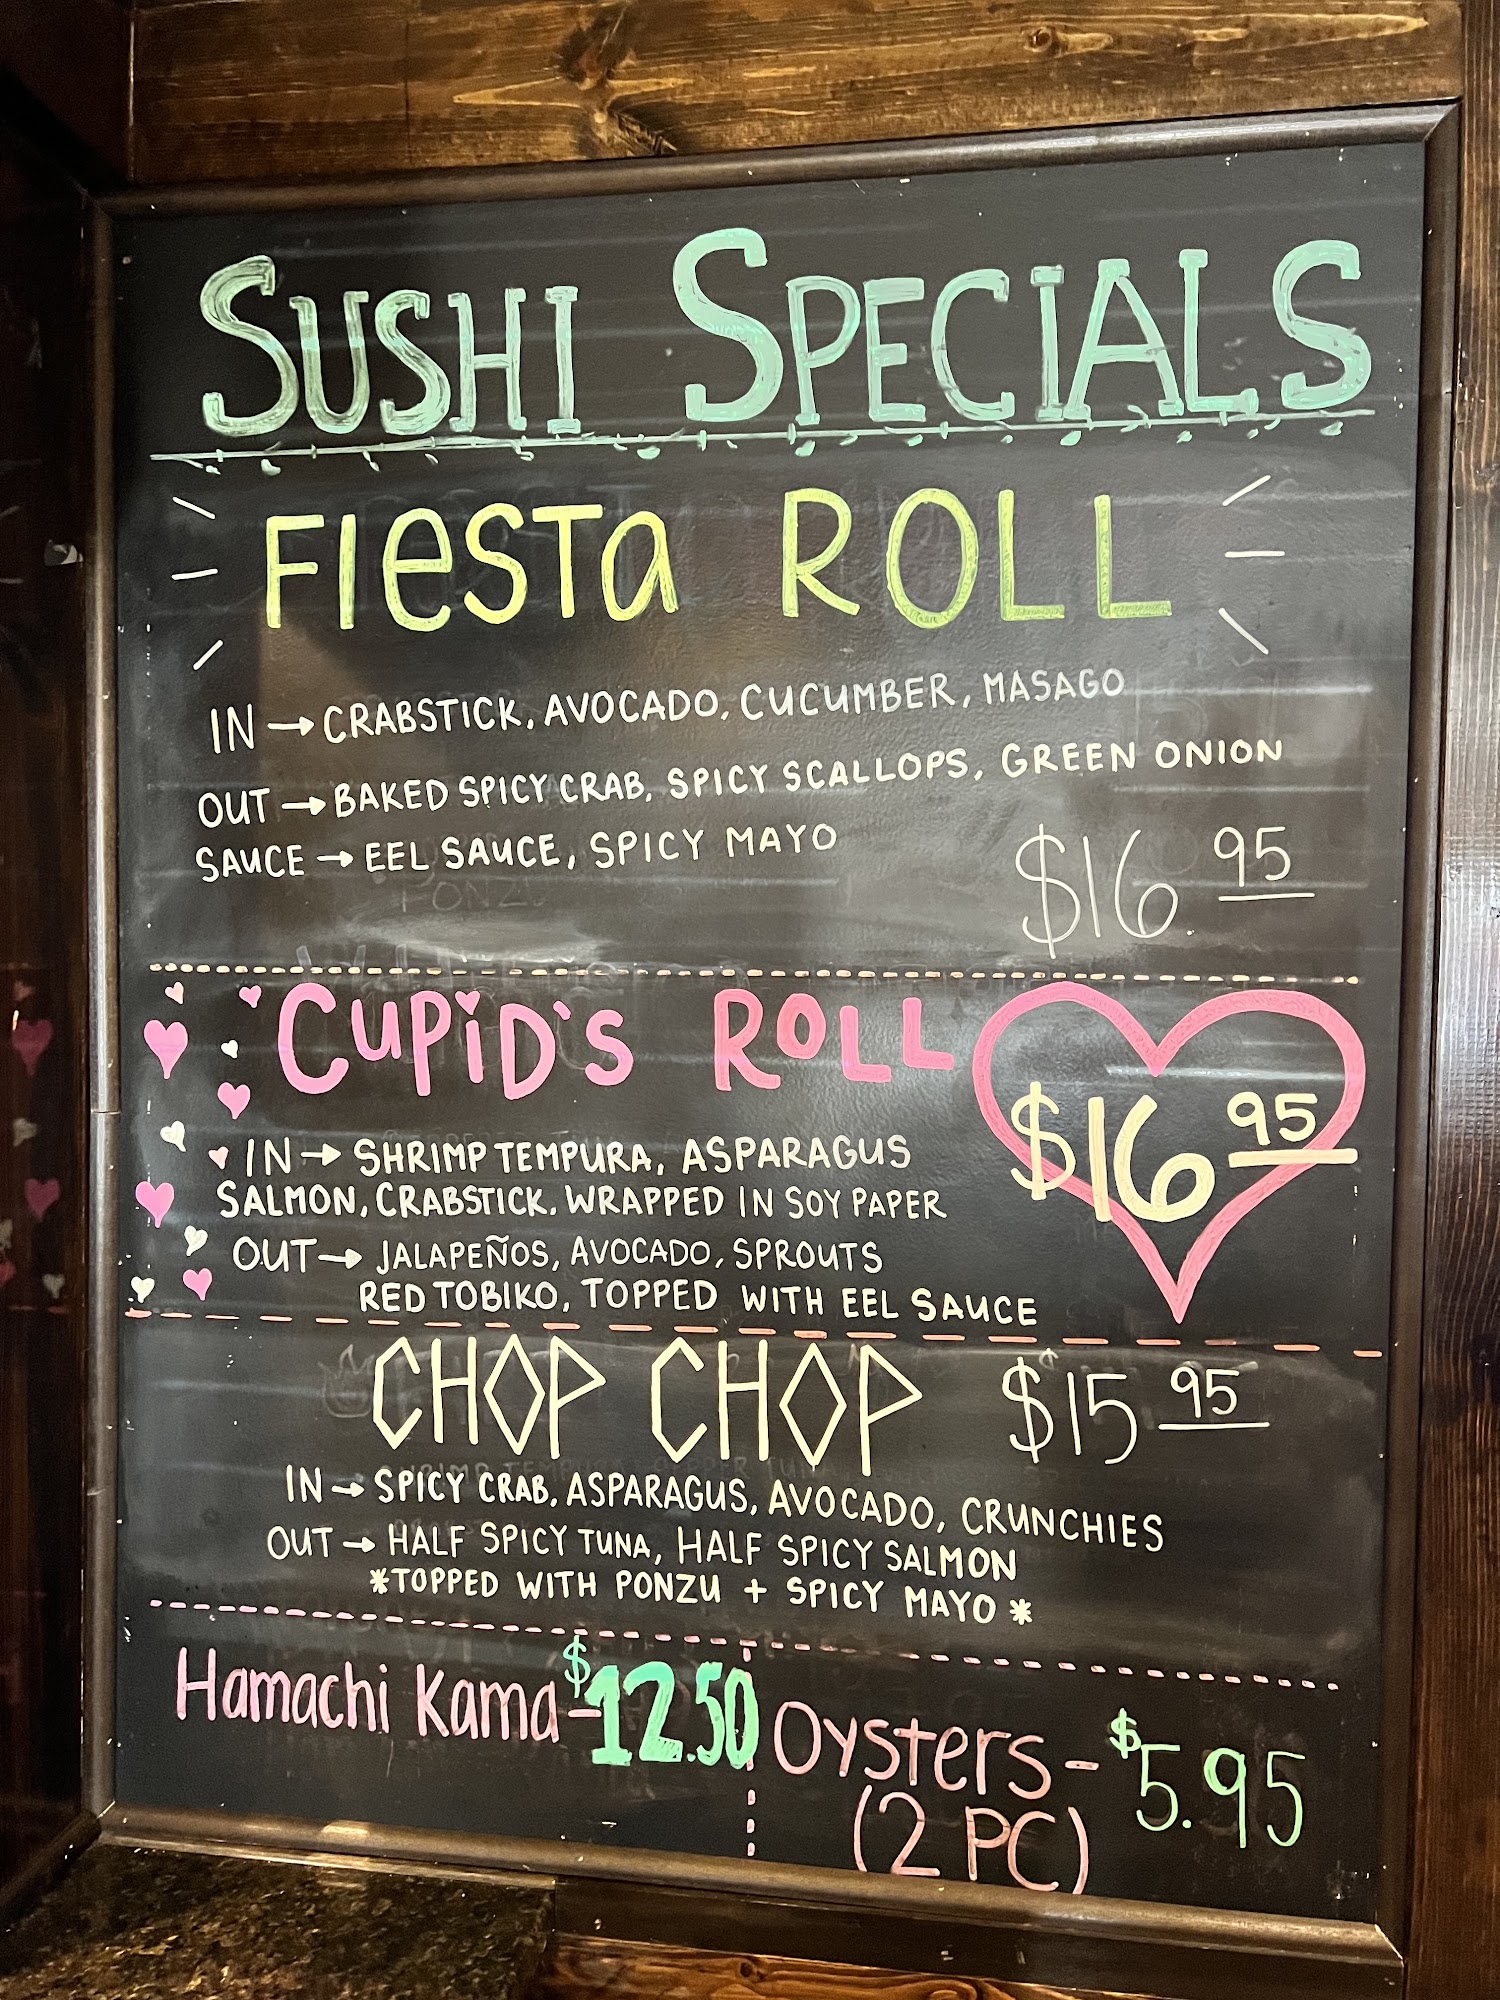 SUSHI SPECIALS
FIESTA ROLL
IN → CRABSTICK, AVOCADO, CUCUMBER, MASAGO
OUT → BAKED SPICY CRAB, SPICY SCALLOPS, GREEN ONION
SAUCE → EEL SAUCE, SPICY MAYO
$16.95
CUPID'S ROLL
$16 95
IN → SHRIMP TEMPURA, ASPARAGUS
SALMON, CRABSTICK, WRAPPED IN SOY PAPER
OUT → JALAPEÑOS, AVOCADO, SPROUTS
RED TOBIKO, TOPPED WITH EEL SAUCE
CHOP CHOP $15 95
IN → SPICY CRAB, ASPARAGUS, AVOCADO, CRUNCHIES
OUT → HALF SPICY TUNA, HALF SPICY SALMON
*TOPPED WITH PONZU + SPICY MAYO *
Hamachi Kama - $12.50
Oysters - $5.95
(2 PC)